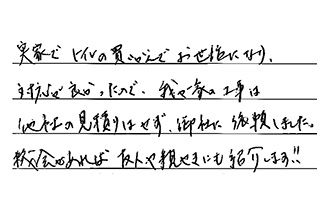 実家でトイレの買いかえでお世話になり、
対応が良かったので、我が家の工事は
他社の見積りはせず、御社に依頼しました。
機会があれば友人や親せきにも紹介します!!